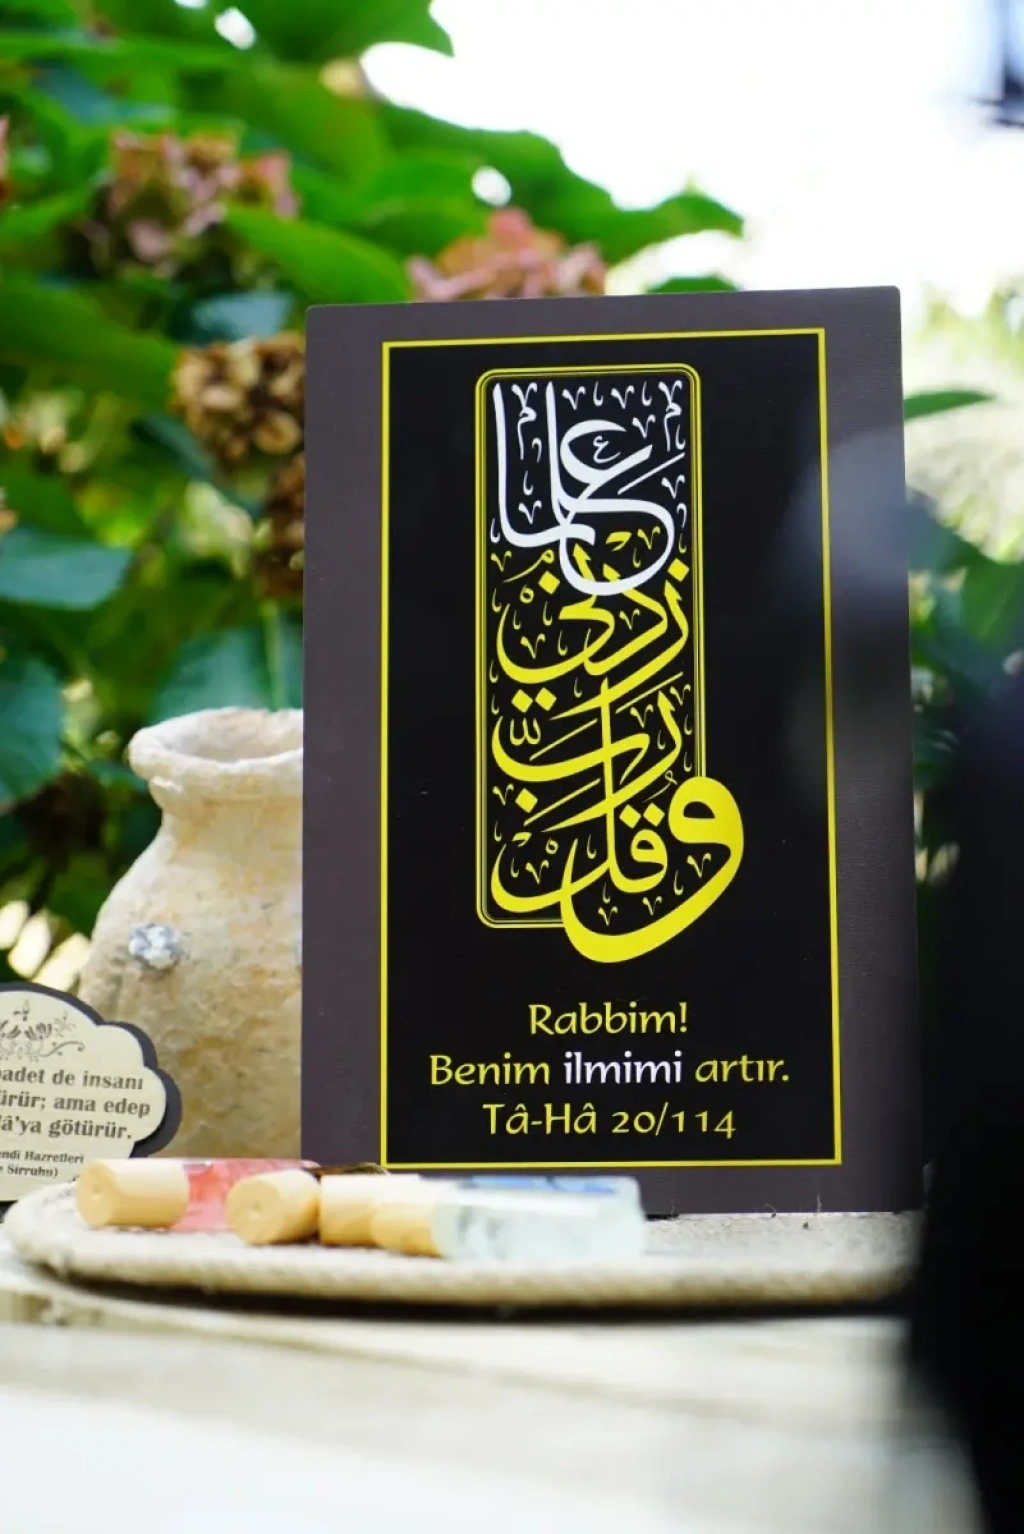 وقل رب زدني علما
Rabbim!
Benim ilmimi artır.
Tâ-Hâ 20/114
de insanı
ama edep
götürür.
Hazretleri
Sirruhu)